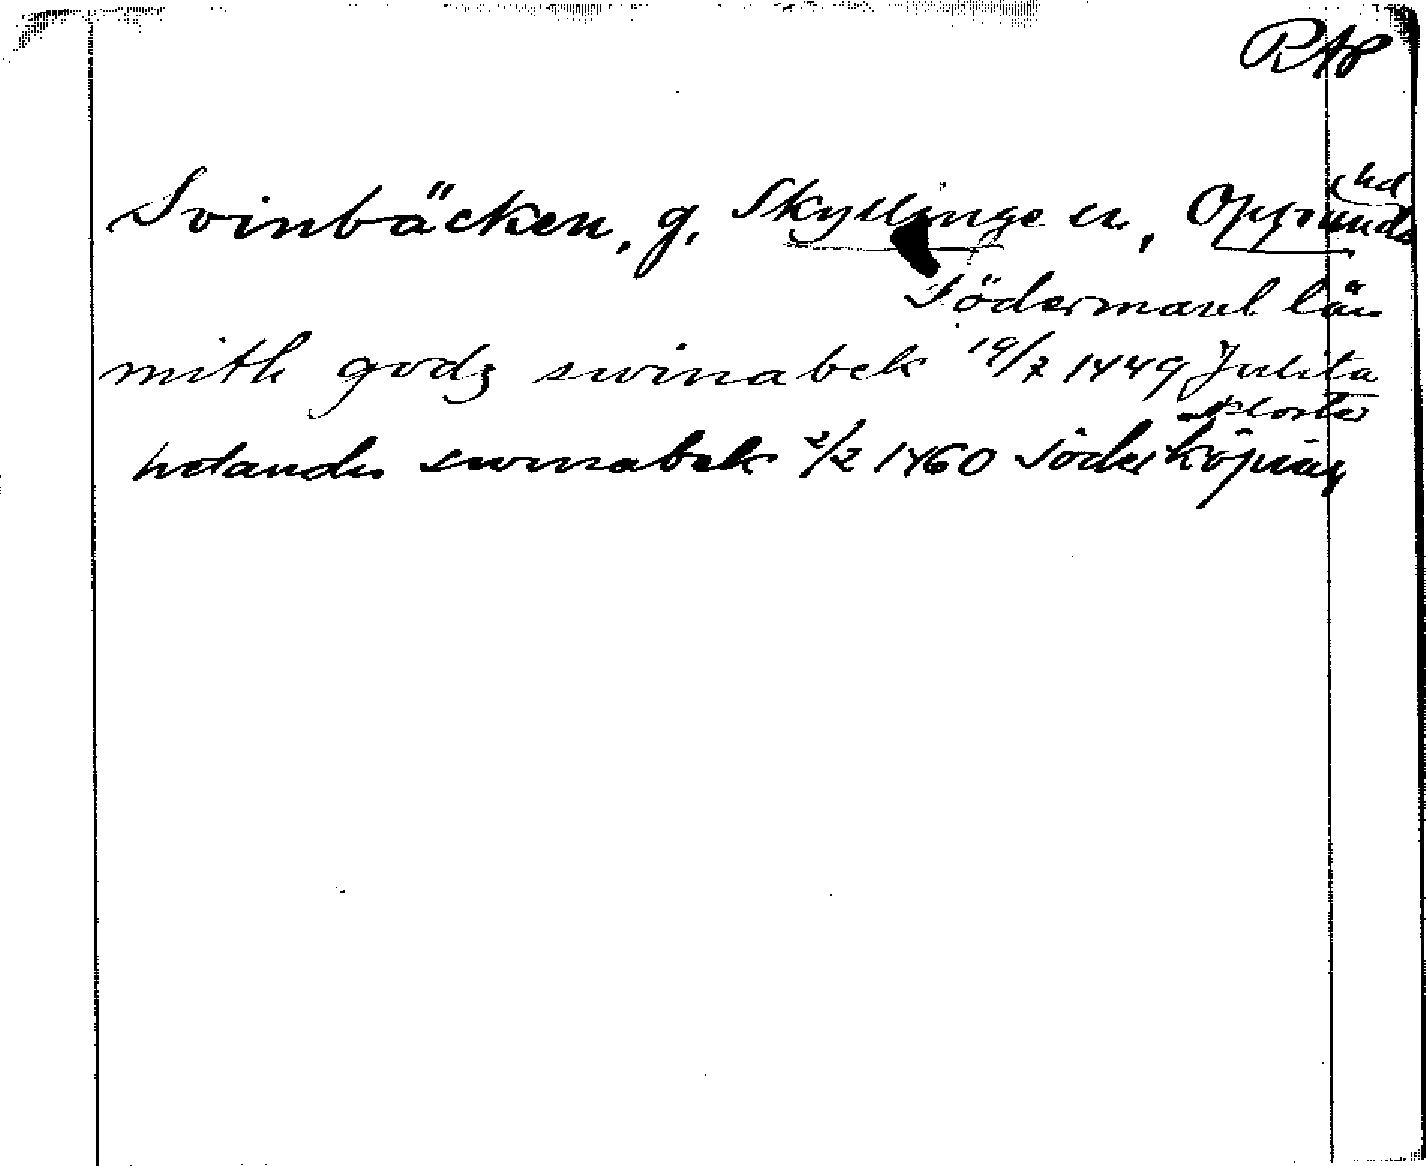 RAP
Svinbäcken, g. Skyllinge sn, Oppunda hd
Södermanl län
mith godz swinabek 19/7 1449 Julita kloster
hetandis swinabek 2/2 1460 Söderköping